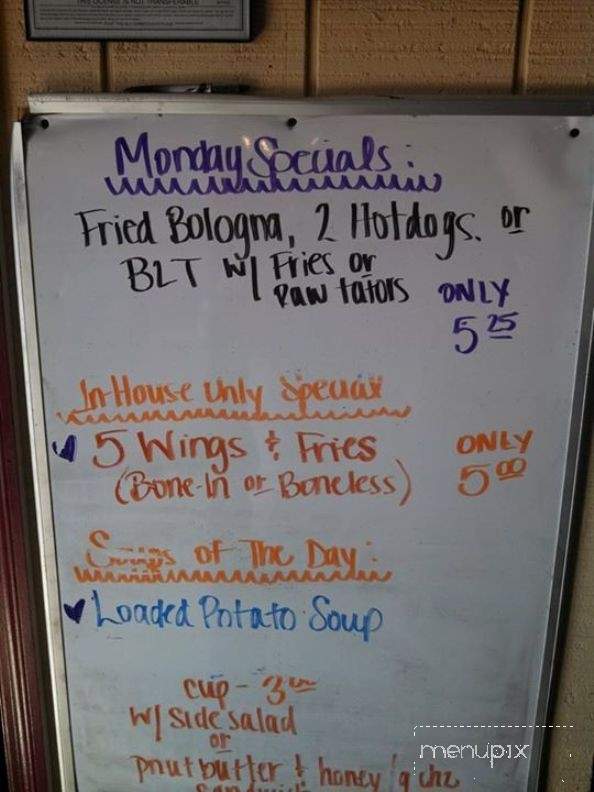 THIS LICENSE IS NOT TRANSFERABLE
Monday Specials:
Fried Bologna, 2 Hotdogs. or
BLT w/ Fries or
Raw tators
ONLY
5 25
In-House Only Special
5 Wings & Fries
ONLY
(Bone-In or Boneless)
5 00
Soups of The Day:
Loaded Potato Soup
cup - 3
w/ side salad
or
pnutbutter & honey
menupix